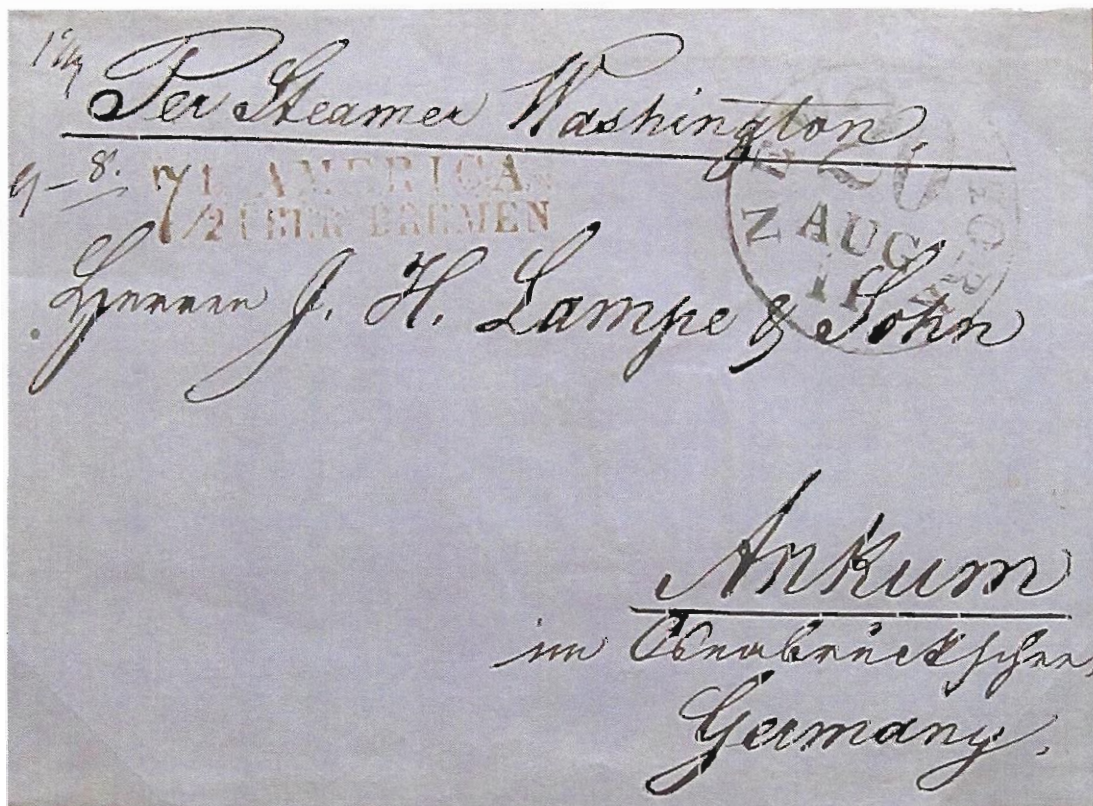 Per Steamer Washington.
9 – 8.
7 1/2
AMERICA
ÜBER BREMEN
NEW YORK
20
AUG
11
Herren J. H. Lampe & Sohn
Ankum
im Osnabrückschen,
Germany.